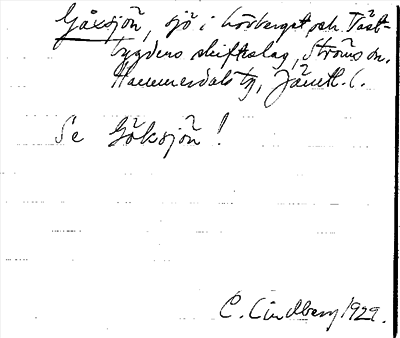 Gåxsjön, sjö i Lövberget och Täxt-
bygdens skiftslag, Ströms sn.
Hammerdals tg, Jämtl. l.
Se Göksjön!
C. Lindberg 1929.